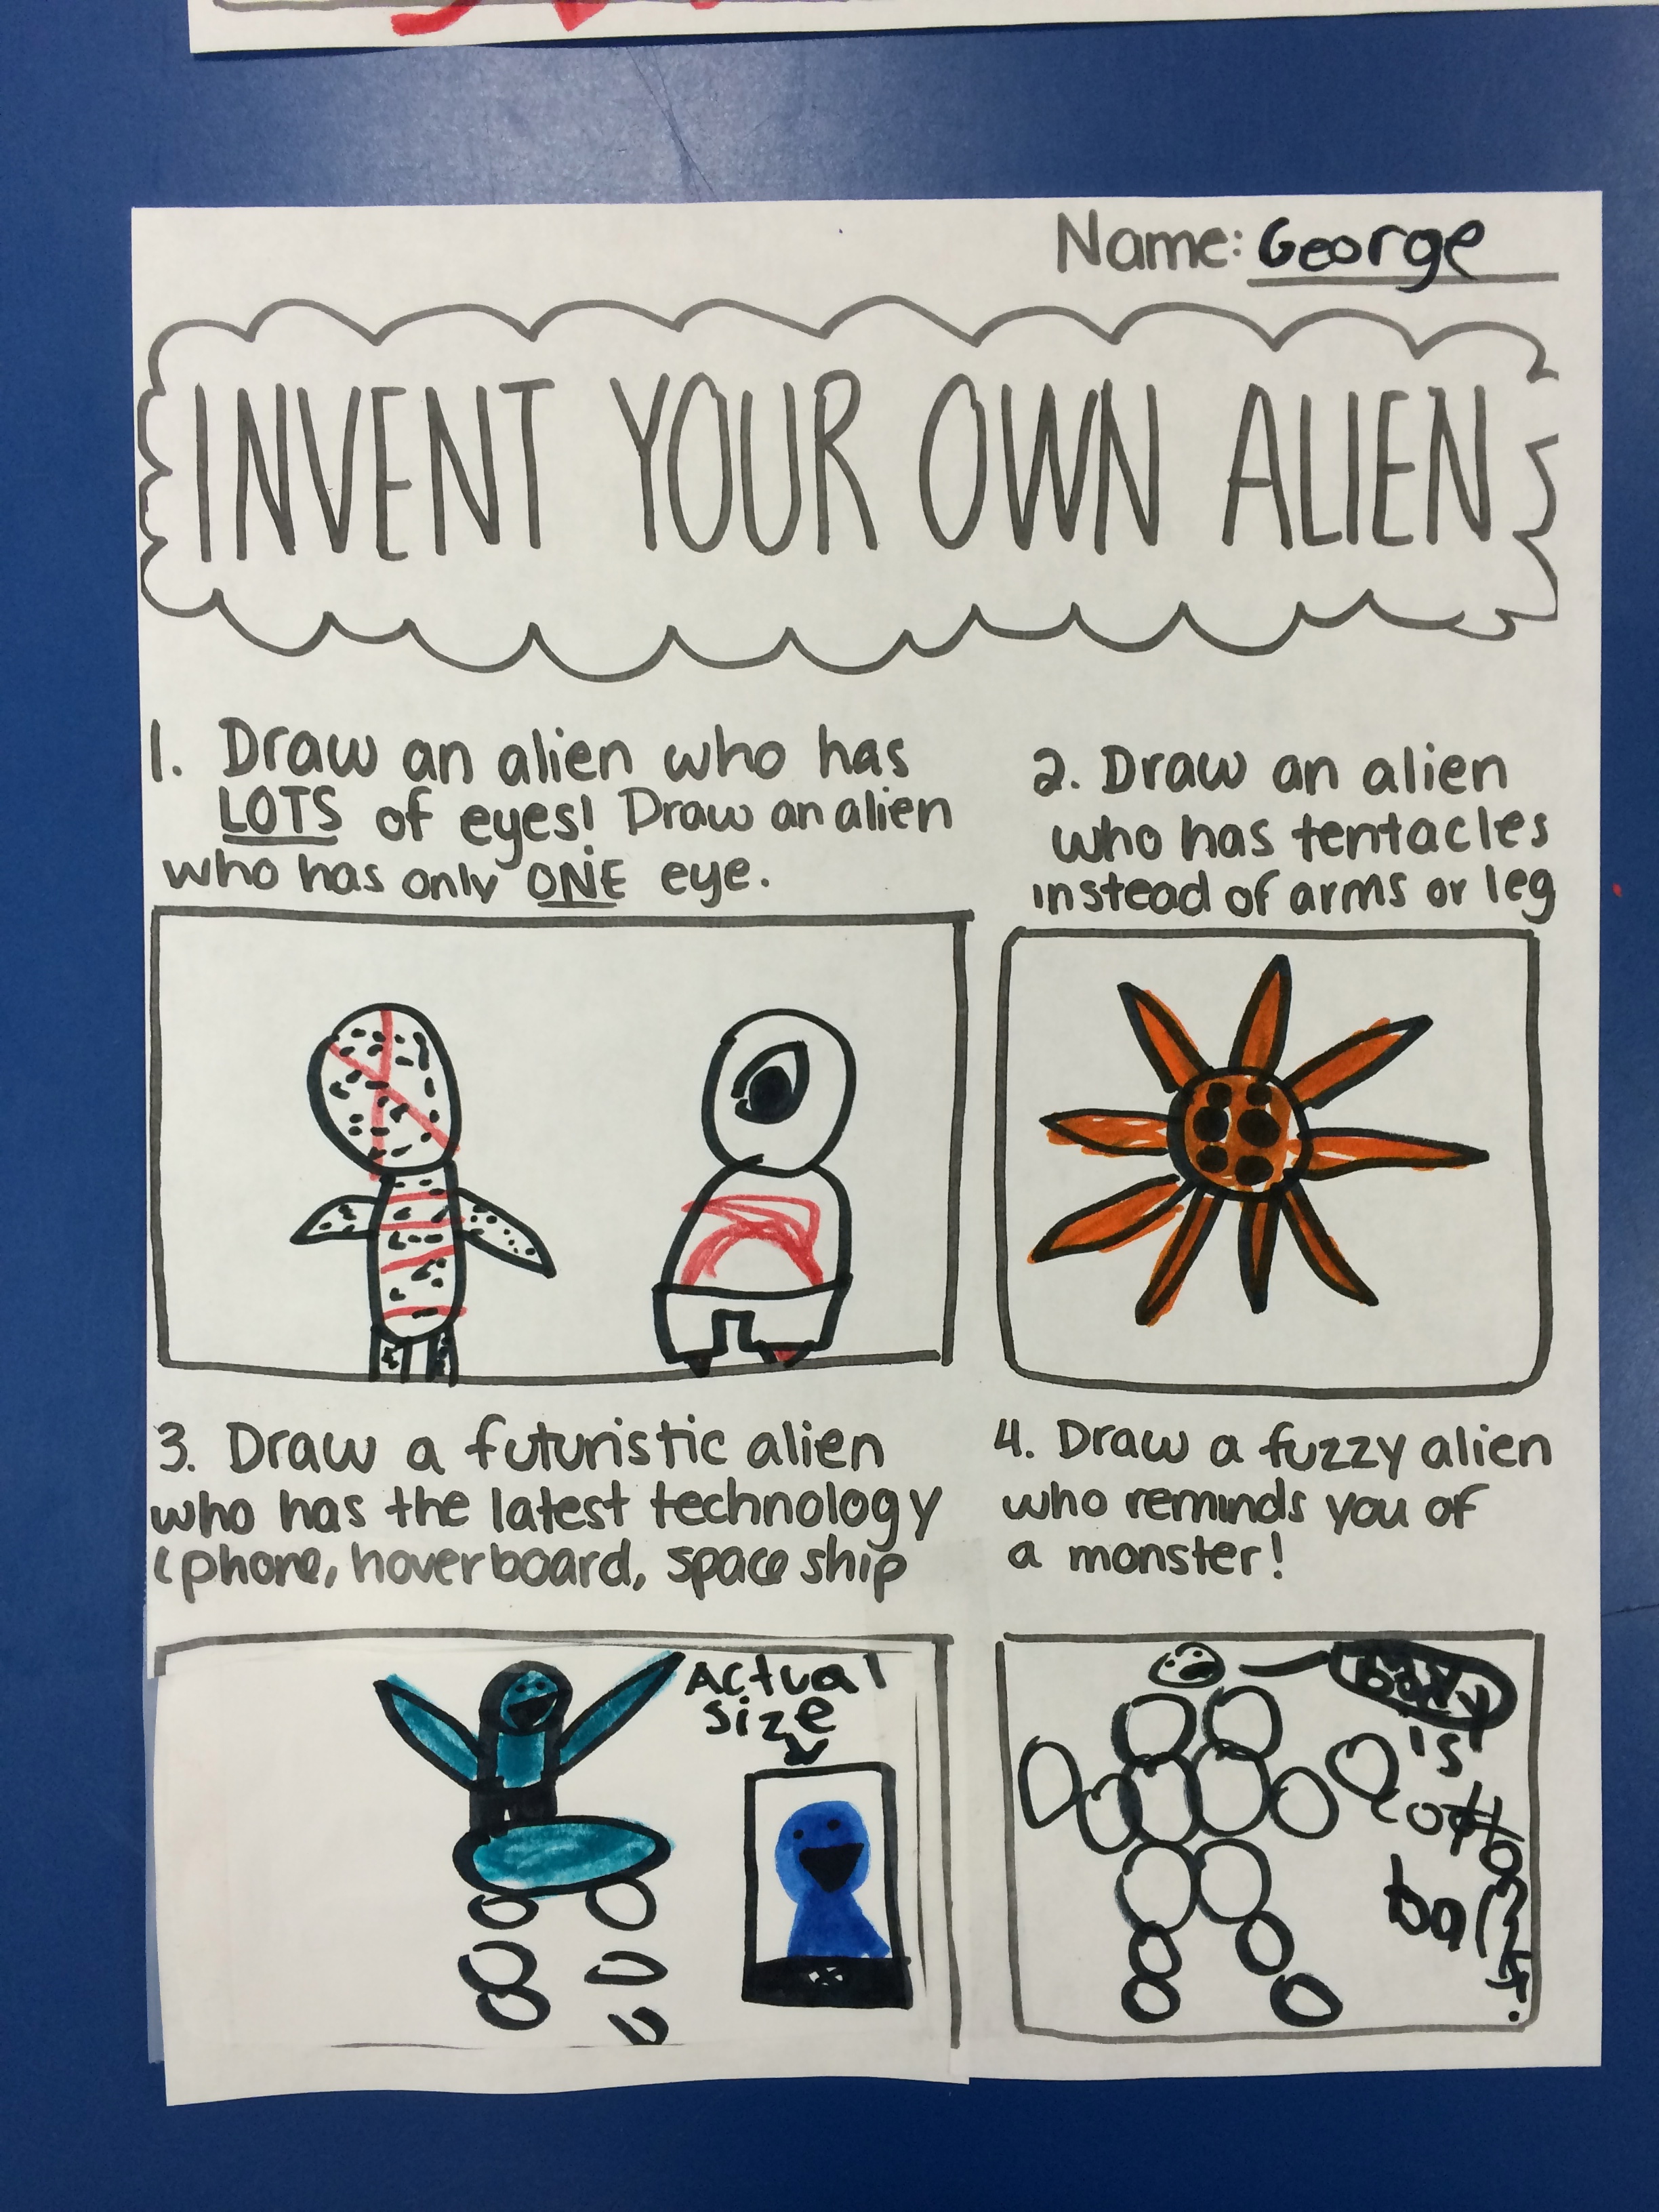 Name: George
INVENT YOUR OWN ALIEN
1. Draw an alien who has
LOTS of eyes! Draw an alien
who has only ONE eye.
2. Draw an alien
who has tentacles
instead of arms or leg
3. Draw a futuristic alien
who has the latest technology
(phone, hoverboard, space ship
Actual
size
4. Draw a fuzzy alien
who reminds you of
a monster!
's